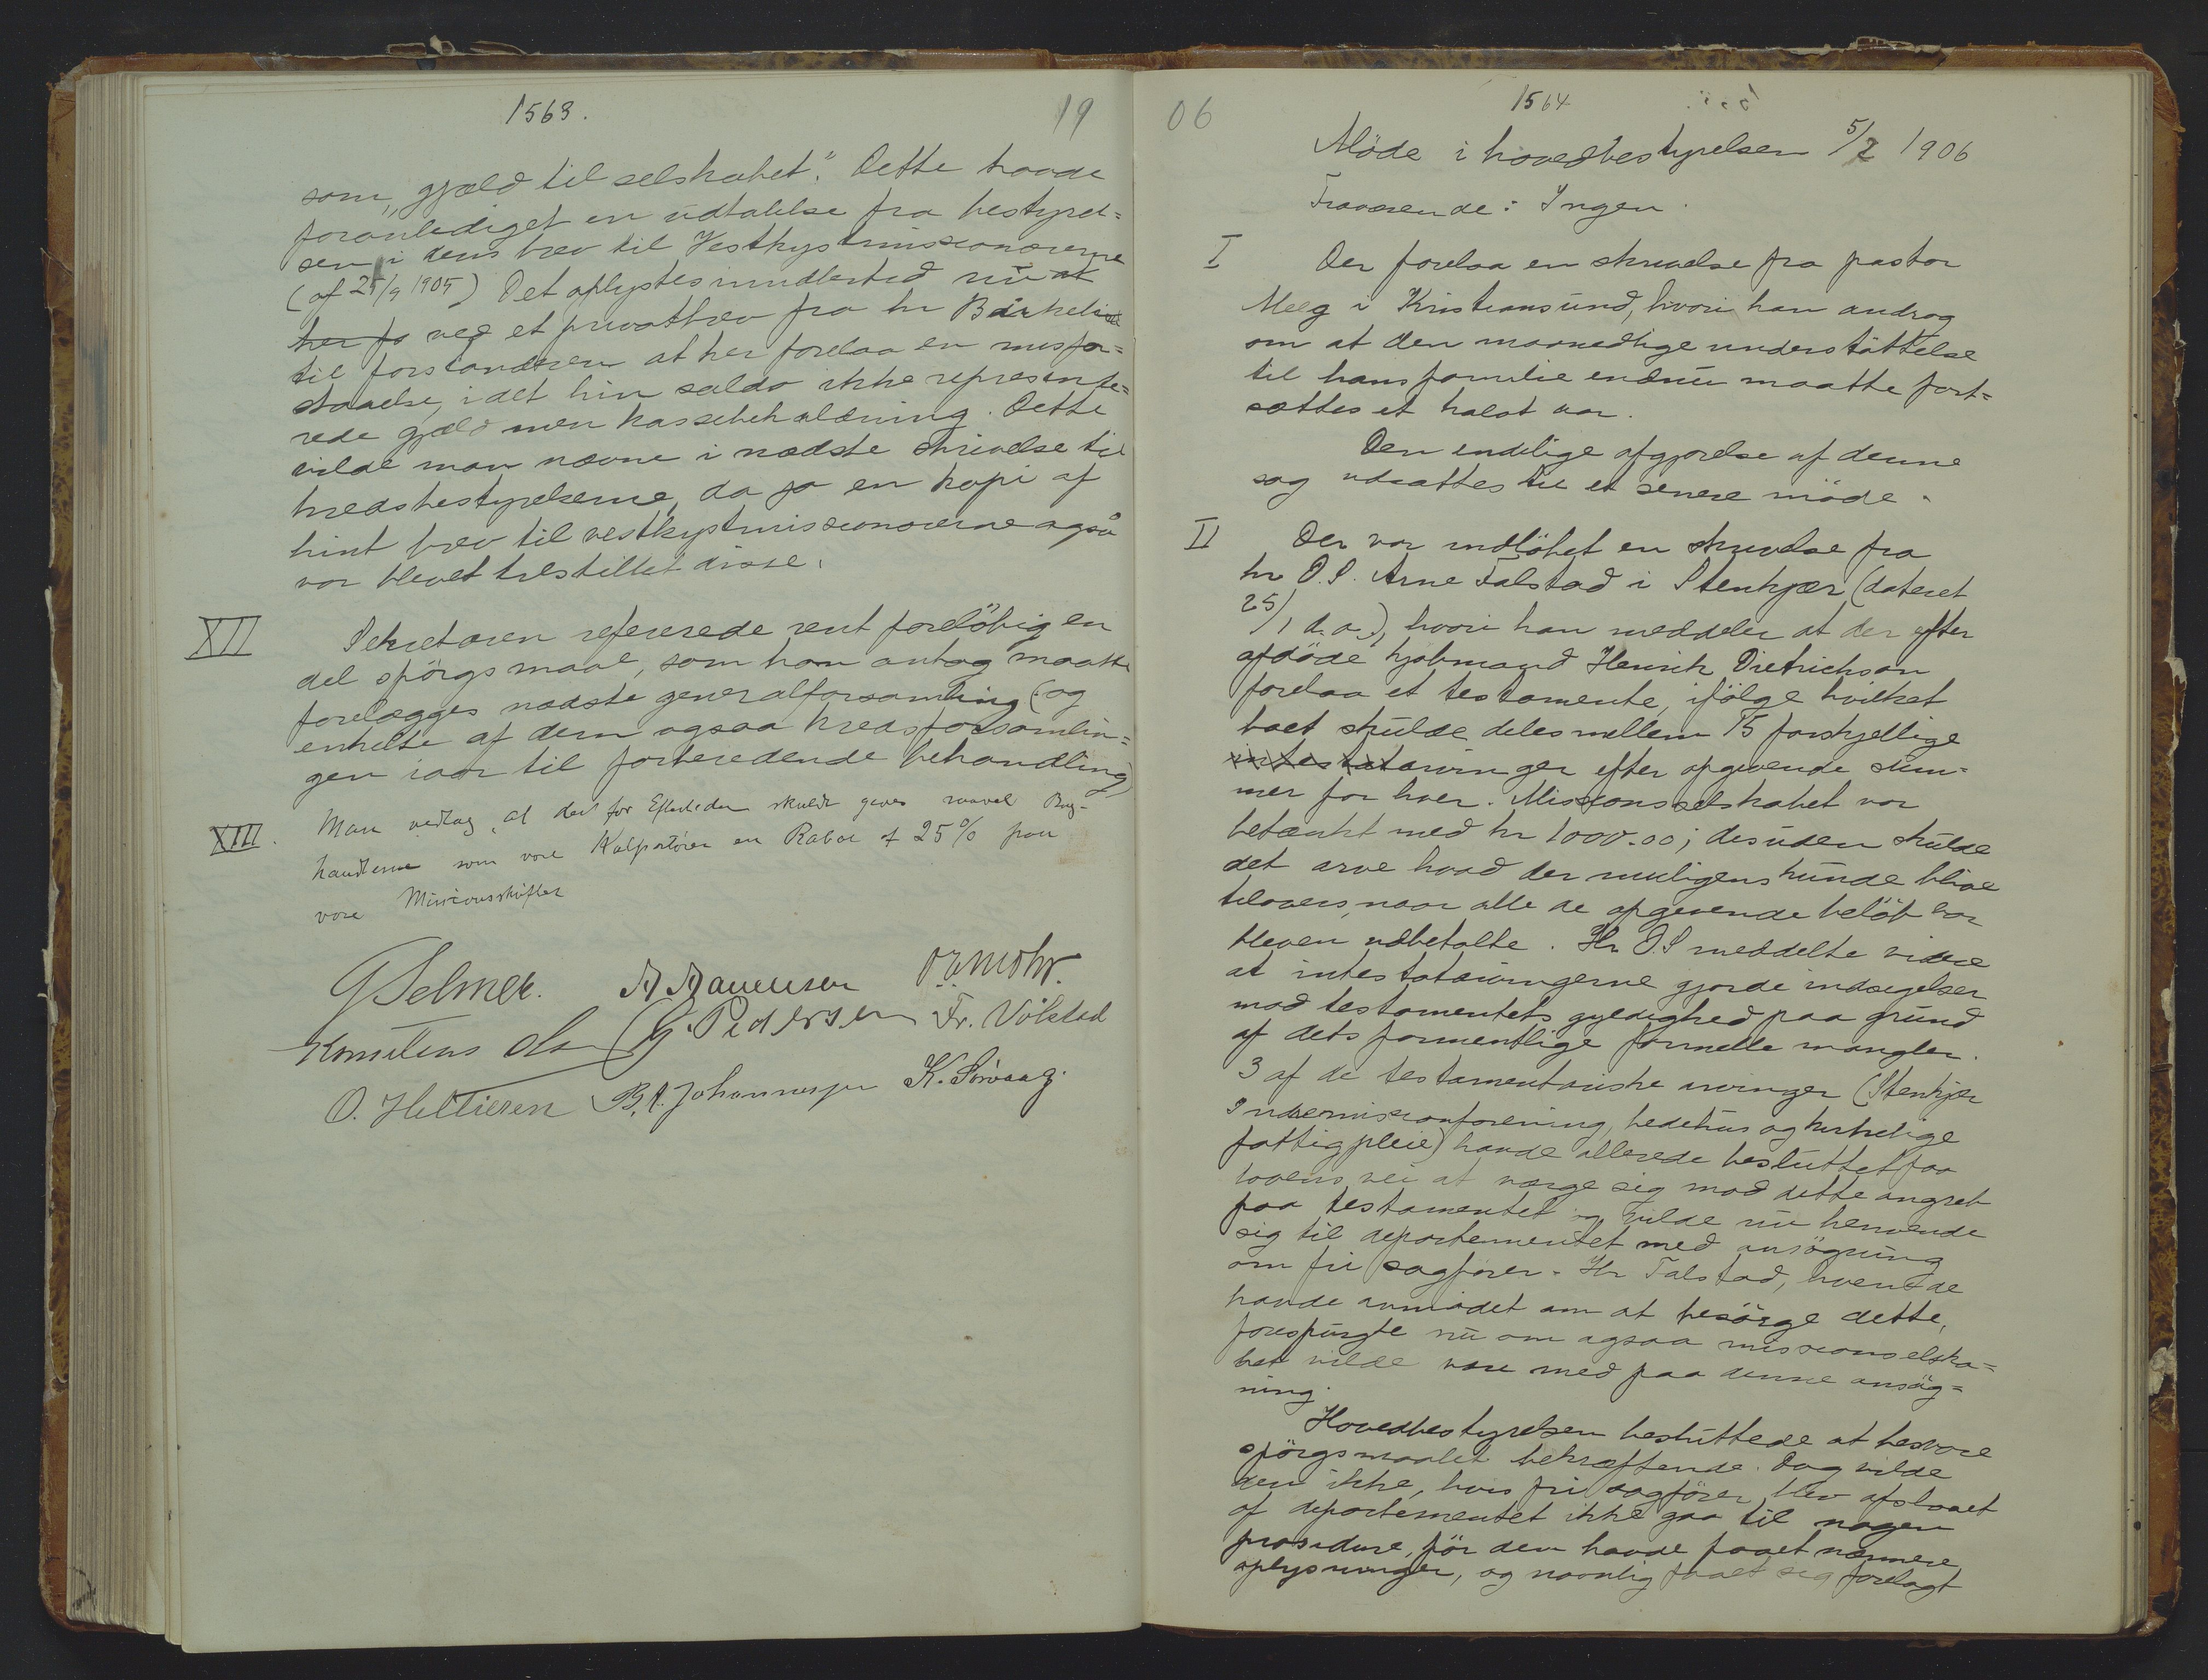 1563.
19
som „gjæld til selskabet". Dette havde
foranlediget en udtalelse fra bestyrel=
sen i dens brev til Vestkystmissionærerne
(af 25/9 1905) Det oplystes imidlertid nu at
her fo ved et privatbrev fra hr Birkeli
til forstanderen at her forelaa en misfor=
staaelse, idet hin saldo ikke represente=
rede gjæld men kassebeholdning. Dette
vilde man nævne i nædste skrivelse til
kredsbestyrelserne, da jo en kopi af
hint brev til vestkystmissionærerne også
var blevet tilstillet disse.
XII Sekretæren refererede rent foreløbig en
del spörgsmaal, som han antog maatte
forelægges nædste generalforsamling (og
enkelte af dem ogsaa kredsforsamlin=
gen iaar til forberedende behandling)
XIII. Man vedtog, at der for Efterdiden skulde gives saavel Bog-
handlerne som vore Kolportörer en Rabat af 25% paa
vore Missionsskrifter
G Selmer. A Aanensen O Z Mohr.
Kornelius G. Pedersen Fr. Völstad
O. Helliesen B. A. Johannesen K. Sörvaag.
06
1564
Möde i hovedbestyrelsen 5/2 1906
Fraværende: Ingen.
I Der forelaa en skrivelse fra pastor
Meeg i Kristiansund, hvori han androg
om at den maanedlige understöttelse
til hans familie endnu maatte fort=
sættes et halvt aar.
Den endelige afgjörelse af denne
sag udsattes til et senere möde.
II Der var indlöbet en skrivelse fra
hr O.S. Arne Falstad i Stenkjær (dateret
25/1 d.a.), hvori han meddeler at der efter
afdöde kjöbmand Henrik Dietrichson
forelaa et testamente, ifölge hvilket
boet skulde deles mellem 15 forskjellige
intestatarvinger efter opgivende sum=
mer for hver. Missionsselskabet var
betænkt med kr 1000.00; desuden skulde
det arve hvad der muligens kunde blive
tilovers, naar alle de opgivende beløb var
bleven udbetalte. Hr O.S meddelte videre
at intestatarvingerne gjorde indsigelser
mod testamentets gyldighed paa grund
af dets formentlige formelle mangler.
3 af de testamentariske arvinger (Stenkjær
Indremissionforening, bedehus og kirkelige
fattigpleie) havde allerede besluttet paa
lovens vei at værge sig mod dette angreb
paa testamentet og vilde nu henvende
sig til departementet med ansögning
om fri sagförer. Hr Falstad, hvem de
havde anmodet om at besörge dette,
forespurgte nu om ogsaa missionselska=
bet vilde være med paa denne ansög=
ning.
Hovedbestyrelsen besluttede at besvare
spörgsmaalet bekræftende. Dog vilde
den ikke, hvis fri sagförer blev afslaaet
af departementet ikke gaa til nogen
prosedure, för den havde faaet nærmere
oplysninger, og navnlig faaet sig forelagt